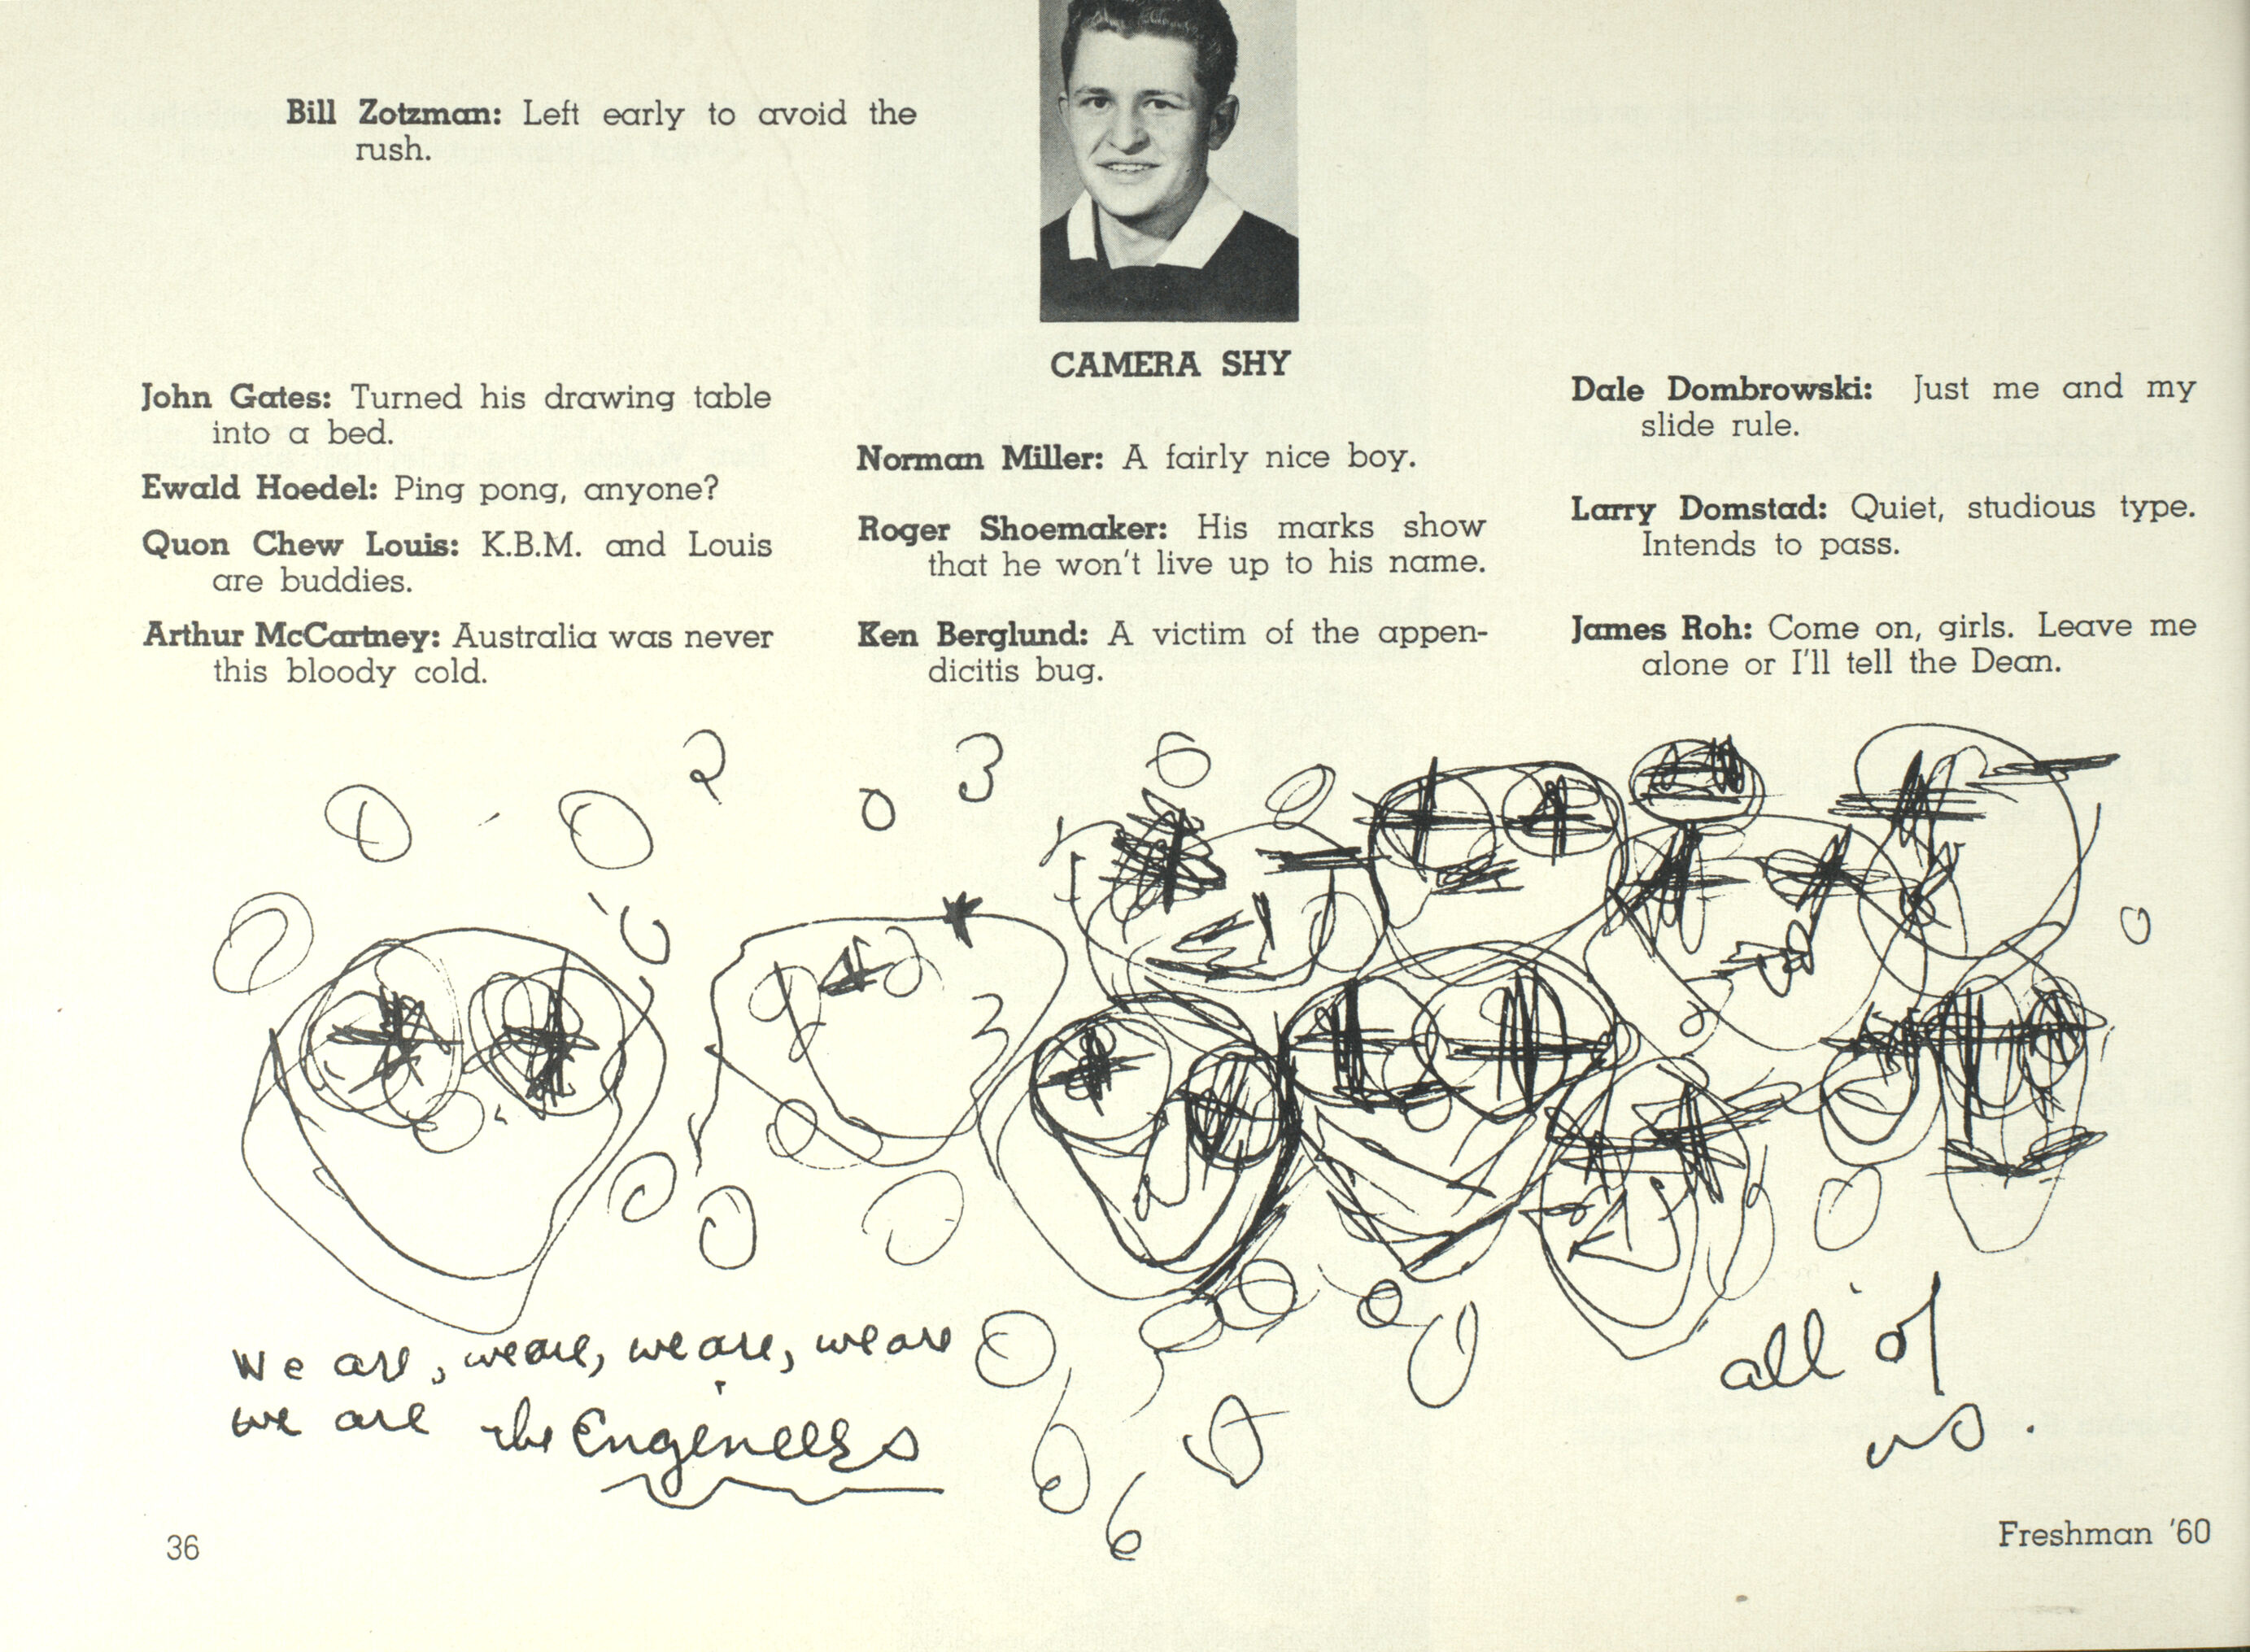 Bill Zotzman: Left early to avoid the
rush.
CAMERA SHY
John Gates: Turned his drawing table
into a bed.
Ewald Hoedel: Ping pong, anyone?
Quon Chew Louis: K.B.M. and Louis
are buddies.
Arthur McCartney: Australia was never
this bloody cold.
Norman Miller: A fairly nice boy.
Roger Shoemaker: His marks show
that he won't live up to his name.
Ken Berglund: A victim of the appen-
dicitis bug.
Dale Dombrowski: Just me and my
slide rule.
Larry Domstad: Quiet, studious type.
Intends to pass.
James Roh: Come on, girls. Leave me
alone or I'll tell the Dean.
2
3
We are, we are, we are, we are
we are the Engineers
all of
us.
6
36
Freshman '60